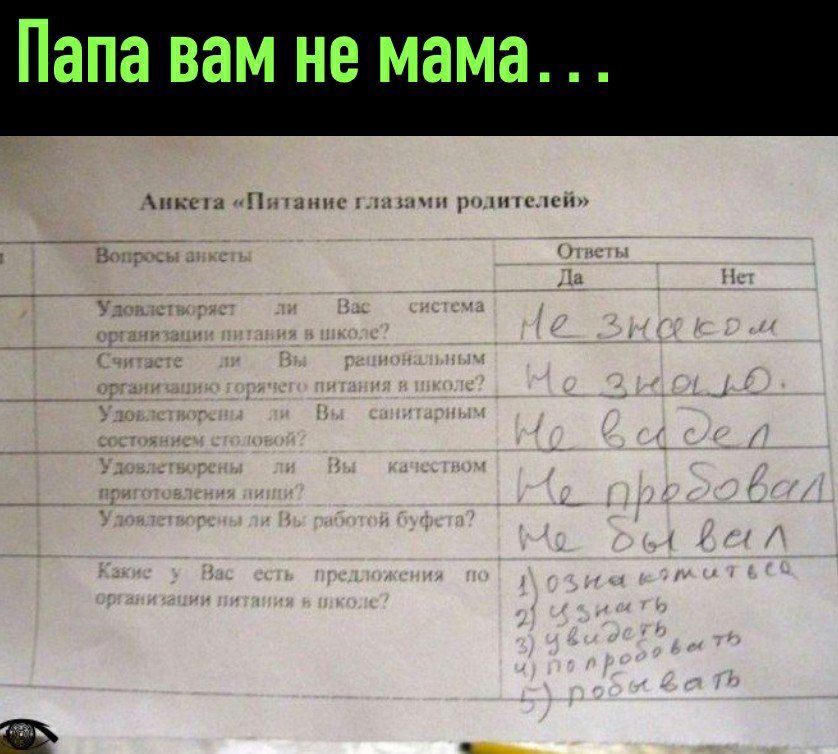 Папа вам не мама...
Анкета «Питание глазами родителей»
Вопросы анкеты
Ответы
Да
Нет
Удовлетворяет ли Вас система
организации питания в школе?
Не знаком
Считаете ли Вы рациональным
организацию горячего питания в школе?
Не знаю.
Удовлетворены ли Вы санитарным
состоянием столовой?
Не видел
Удовлетворены ли Вы качеством
приготовления пищи?
Не пробовал
Удовлетворены ли Вы работой буфета?
Не бывал
Какие у Вас есть предложения по
организации питания в школе?
1) ознакомиться
2) узнать
3) увидеть
4) попробовать
5) побывать